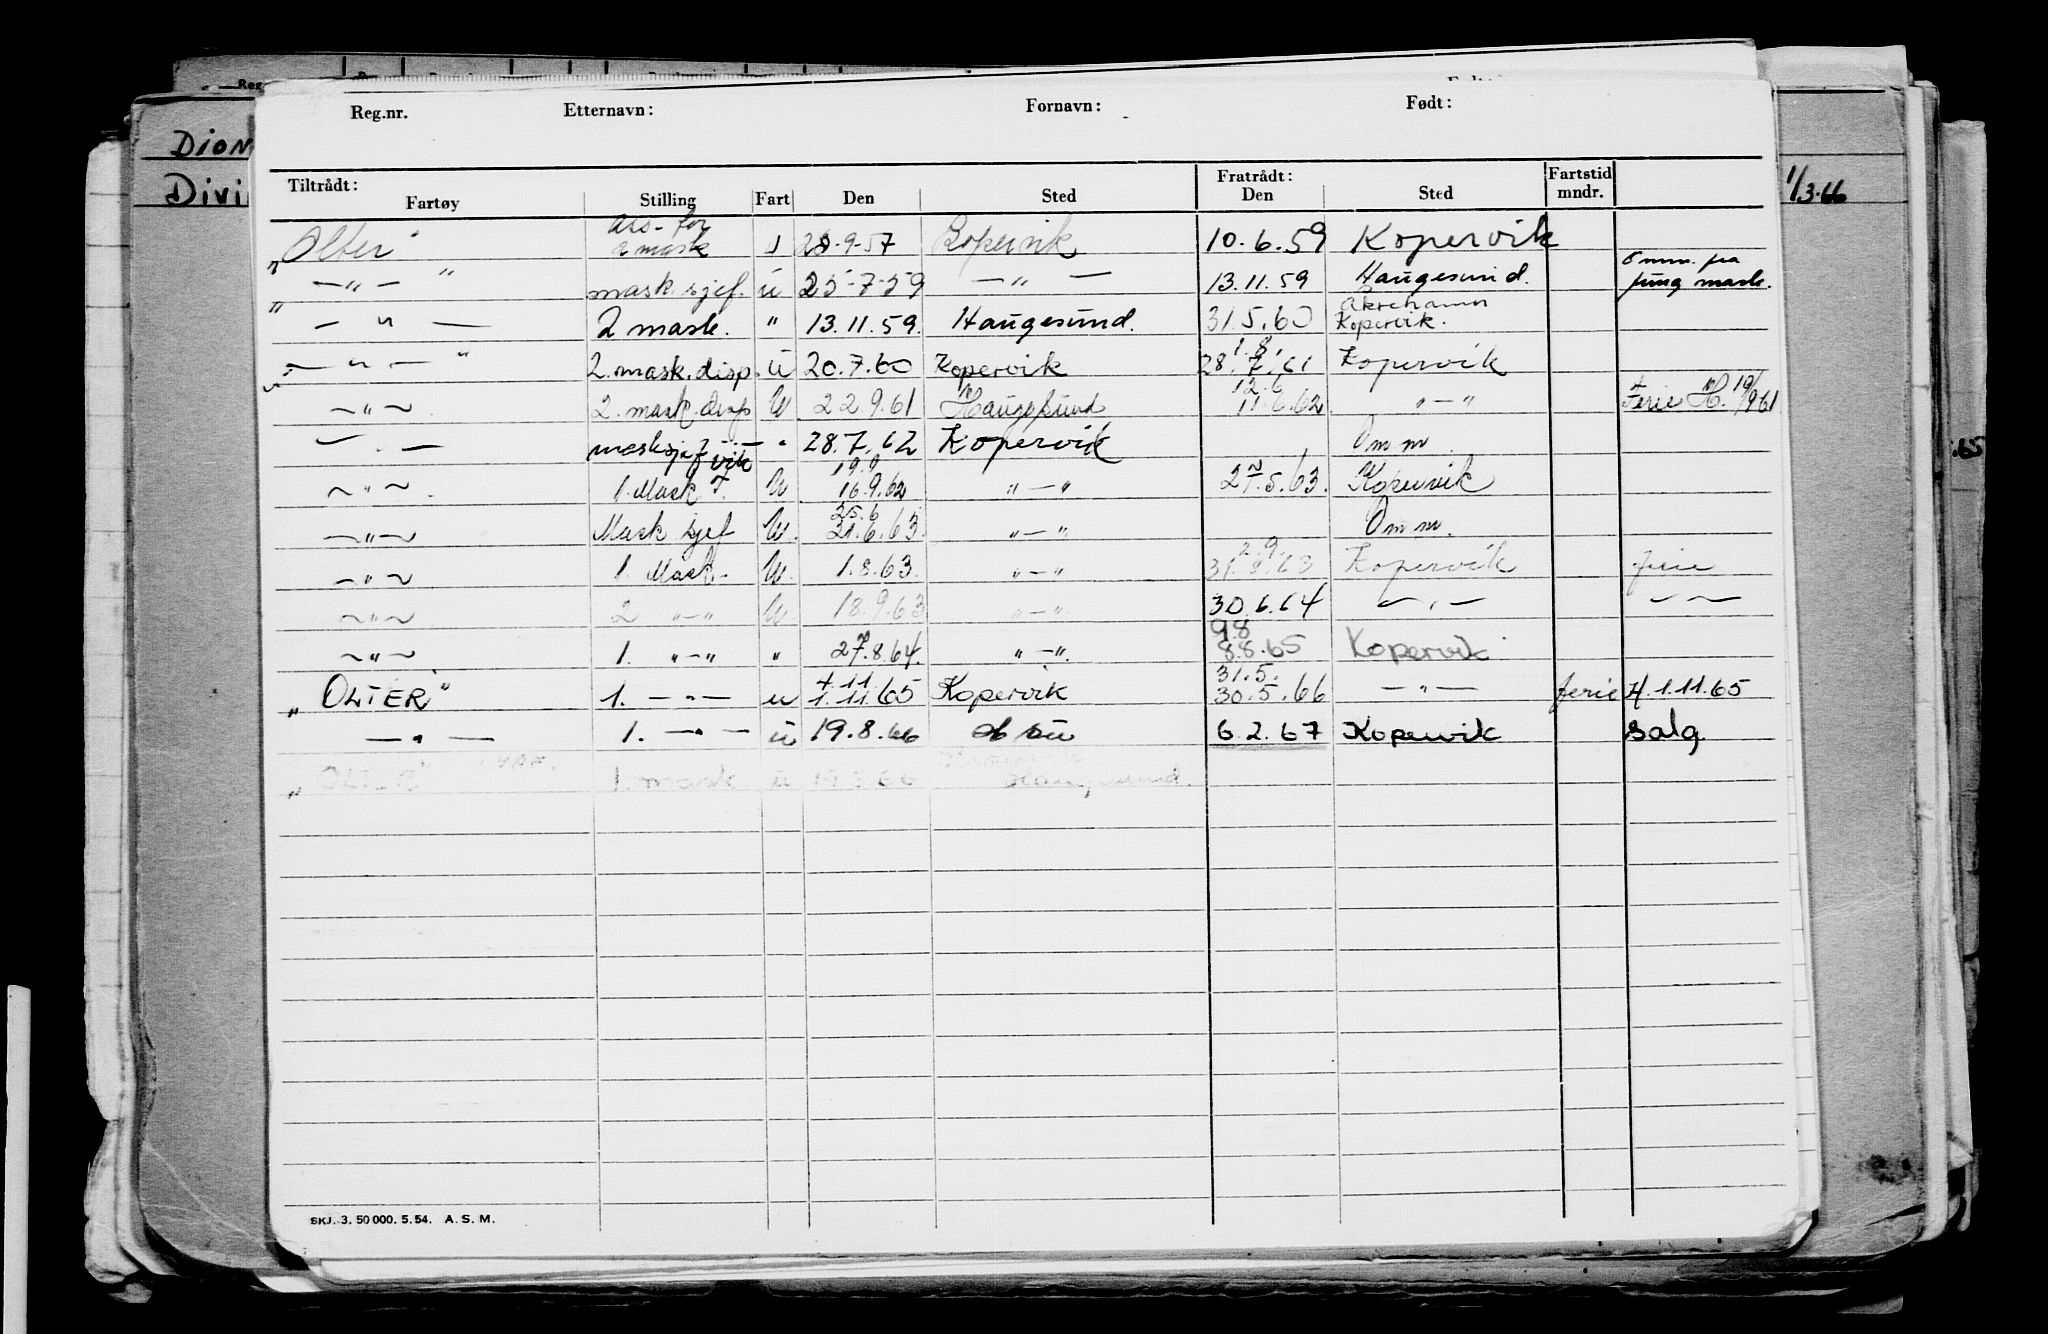 Reg.nr. Etternavn: Fornavn: Født:
Dion
Divi
1/3.66
Tiltrådt: Fratrådt: Fartstid
Fartøy Stilling Fart Den Sted Den Sted mndr.
Olter" ass. for
2 mask u 28-9-57 Kopervik 10.6.59 Kopervik
" — " — " mask.sjef. u 25-7-59 — " — 13.11.59 Haugesund. Omm. fra
fung mask.
" — " — 2 mask. " 13.11.59. Haugesund. 31.5.60 Åkrehamn
Kopervik.
— " — " 2. mask. disp. u 20.7.60 Kopervik 1.8.
28.7.61 Kopervik
— " — 2. mask disp U 22.9.61 Haugesund 12.6
11.6.62 " — " Ferie H. 19/9 61
— . — masksjef vik — " 28.7.62 Kopervik Om m .65
— " — . 1. Mask F. U 19.9
16.9.62 " — " 27.5.63. Kopervik
— " — Mask sjef U. 25.6
21.6.63. " — " Om m.
— " — 1. Mask. U. 1.8.63. " — " 2.9.
31.8.63 Kopervik ferie
— " — 2 " — " U 18.9.63 " — " 30.6.64 — " — — " —
— " — 1. " — " " 27.8.64. " — ". 9.8
8.8.65 Kopervik
„ OLTER" 1. — " — u 4.11
1.11.65 Kopervik 31.5.
30.5.66 — " — ferie H. 1.11.65
— " — 1. — " — u 19.8.66 6.2.67 Kopervik Salg.
„ OLTER" 1. mask u Haugesund.
SKJ. 3. 50 000. 5. 54. A. S. M.